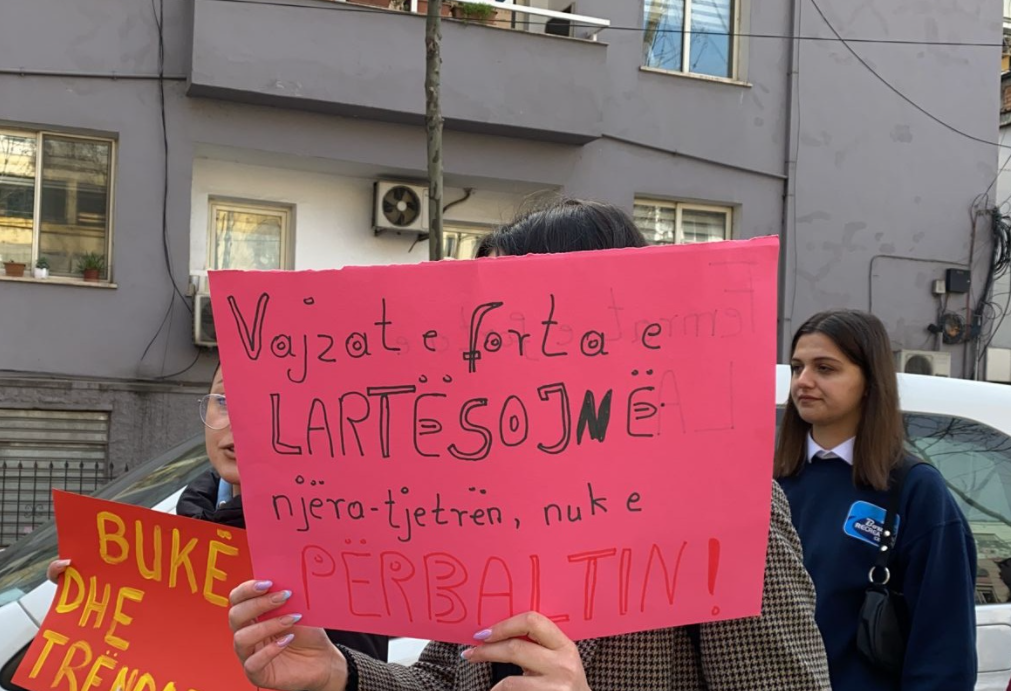 Vajzat e forta e
LARTËSOJNË
njëra-tjetrën, nuk e
PËRBALTIN!
BUKË
DHE